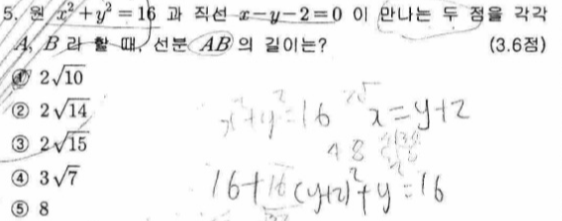 5. 원 x²+y²=16 과 직선 x-y-2=0 이 만나는 두 점을 각각
A, B 라 할 때, 선분 AB 의 길이는? (3.6점)
① 2√10
② 2√14
③ 2√15
④ 3√7
⑤ 8
x²+y²=16 x=y+2
48
16+16(y+2)²+y²=16